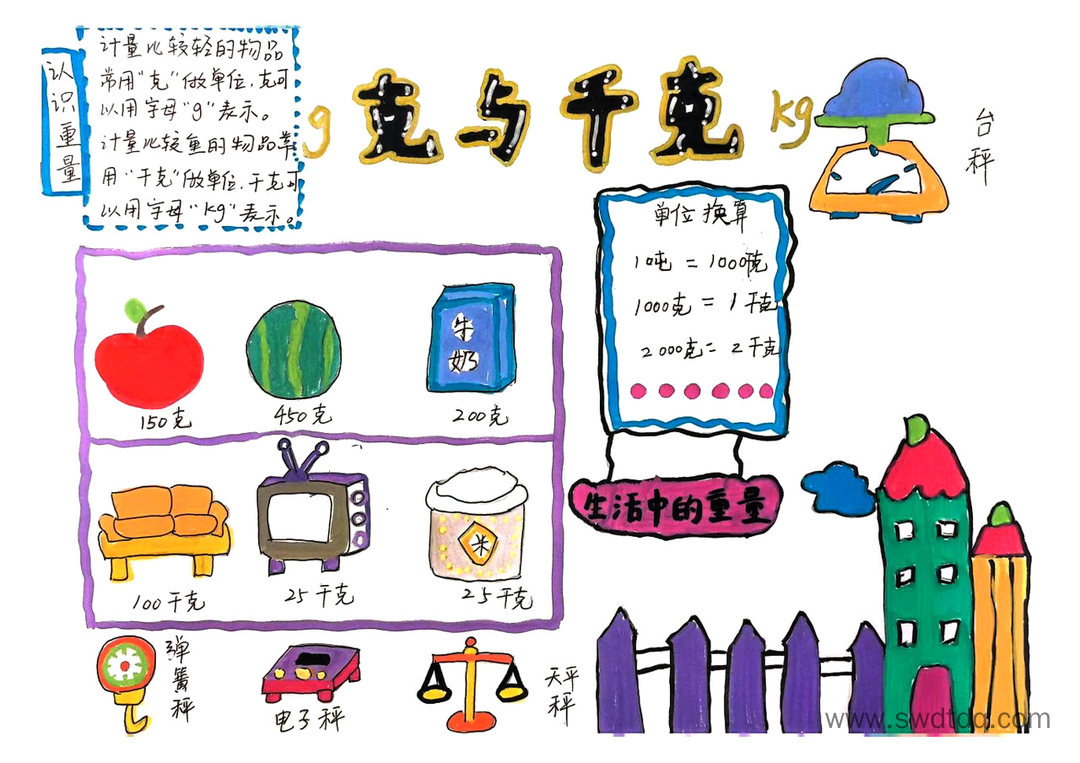 认识重量
计量比较轻的物品
常用"克"做单位,克可
以用字母"g"表示。
计量比较重的物品常
用"千克"做单位,千克可
以用字母"kg"表示。
g 克与千克 kg
台秤
单位换算
1吨 = 1000千克
1000克 = 1千克
2000克 = 2千克
生活中的重量
牛奶
150克
450克
200克
米
100千克
25千克
25千克
弹簧秤
电子秤
天平秤
www.swdtdq.com